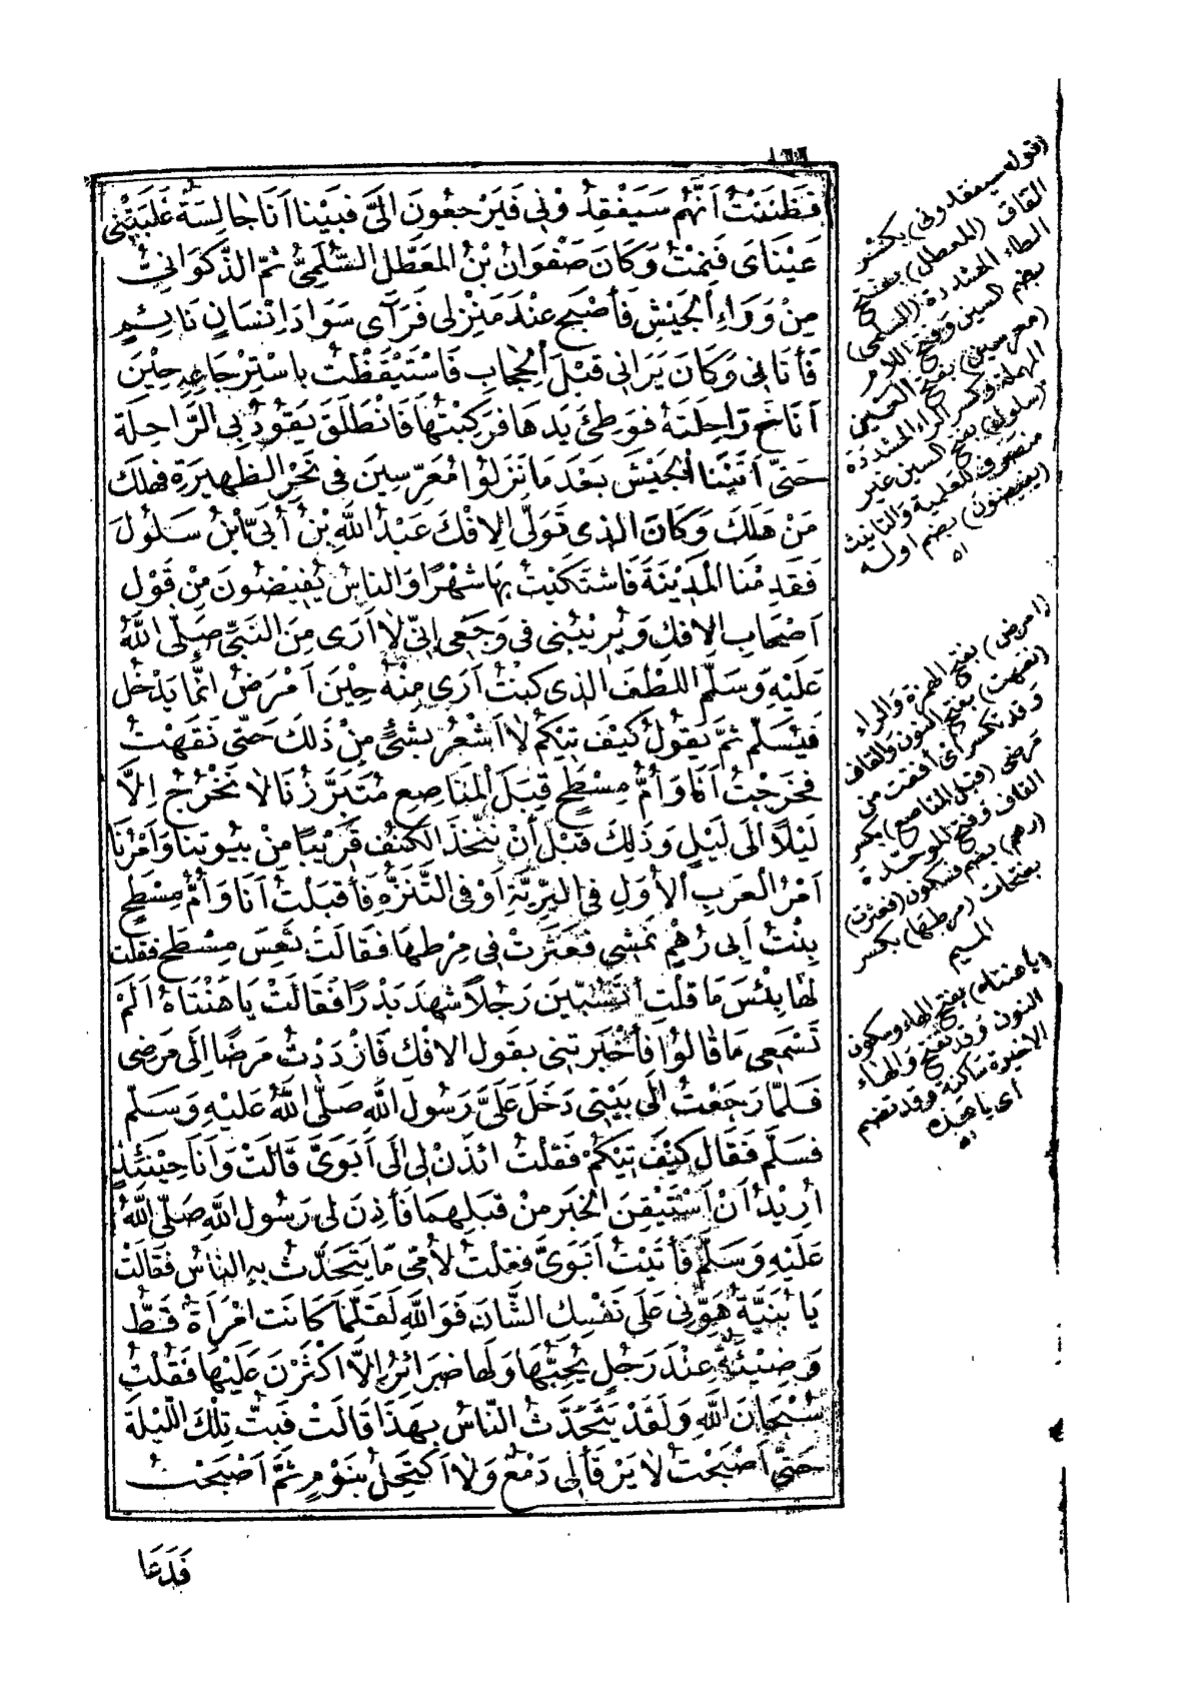 ١٦٦
فَظَنَنْتُ اَنَّهُمْ سَيَفْقِدُوْنِي فَيَرْجِعُونَ اِلَيَّ فَبَيْنَا اَنَا جَالِسَةٌ غَلَبَتْنِي
عَيْنَايَ فَنِمْتُ وَكَانَ صَفْوَانُ بْنُ المُعَطَّلِ السُّلَمِيُّ ثُمَّ الذَّكَوَانِيُّ
مِنْ وَرَاءِ الْجَيْشِ فَأَصْبَحَ عِنْدَ مَنْزِلِي فَرَآى سَوَادَ اِنْسَانٍ نَائِمٍ
فَأَتَانِي وَكَانَ يَرَانِي قَبْلَ الْحِجَابِ فَاسْتَيْقَظْتُ بِاسْتِرْجَاعِهِ حِيْنَ
اَنَاخَ رَاحِلَتَهُ فَوَطِئَ يَدَهَا فَرَكِبْتُهَا فَانْطَلَقَ يَقُوْدُ بِي الرَّاحِلَةَ
حَتَّى اَتَيْنَا الْجَيْشَ بَعْدَ مَا نَزَلُوْا مُعَرِّسِينَ فِي نَحْرِ الظَّهِيْرَةِ فَهَلَكَ
مَنْ هَلَكَ وَكَانَ الذِي تَوَلَّى الاِفْكَ عَبْدُ اللهِ بْنُ أُبَيِّ ابْنُ سَلُوْلَ
فَقَدِمْنَا الْمَدِيْنَةَ فَاشْتَكَيْتُ بِهَا شَهْرًا وَالناسُ يُفِيْضُونَ مِنْ قَوْلِ
اَصْحَابِ الاِفْكِ وَيُرِيْبُنِي فِي وَجَعِي اِنِّي لَا اَرَى مِنَ النَّبِيِّ صَلَّى اللهُ
عَلَيْهِ وَسَلَّمَ اللُّطْفَ الذِي كُنْتُ اَرَى مِنْهُ حِيْنَ اَمْرَضُ اِنَّمَا يَدْخُلُ
فَيُسَلِّمُ ثُمَّ يَقُولُ كَيْفَ تِيْكُمْ لَا اَشْعُرُ بِشَيْءٍ مِنْ ذَلِكَ حَتَّى نَقَهْتُ
فَخَرَجْتُ اَنَا وَاُمُّ مِسْطَحٍ قِبَلَ الْمَنَاصِعِ مُتَبَرَّزُنَا لَا نَخْرُجُ اِلَّا
لَيْلًا اِلَى لَيْلٍ وَذَلِكَ قَبْلَ اَنْ نَتَّخِذَ الكُنُفَ قَرِيْبًا مِنْ بُيُوتِنَا وَاَمْرُنَا
اَمْرُ العَرَبِ الأُوَلِ فِي البَرِّيَّةِ اَوْ فِي التَّنَزُّهِ فَأَقْبَلْتُ اَنَا وَاُمُّ مِسْطَحٍ
بِنْتُ اَبِي رُهْمٍ نَمْشِي فَعَثَرَتْ فِي مِرْطِهَا فَقَالَتْ تَعِسَ مِسْطَحٌ فَقُلْتُ
لَهَا بِئْسَ مَا قُلْتِ اَتَسُبِّيْنَ رَجُلًا شَهِدَ بَدْرًا فَقَالَتْ يَا هَنْتَاهُ اَلَمْ
تَسْمَعِي مَا قَالُوْا فَأَخْبَرَتْنِي بِقَولِ الاِفْكِ فَازْدَدْتُ مَرَضًا اِلَى مَرَضِي
فَلَمَّا رَجَعْتُ اِلَى بَيْتِي دَخَلَ عَلَيَّ رَسُولُ اللهِ صَلَّى اللهُ عَلَيْهِ وَسَلَّمَ
فَسَلَّمَ فَقَالَ كَيْفَ تِيْكُمْ فَقُلْتُ ائْذَنْ لِي اِلَى اَبَوَيَّ قَالَتْ وَاَنَا حِيْنَئِذٍ
اُرِيْدُ اَنْ اَسْتَيْقِنَ الْخَبَرَ مِنْ قِبَلِهِمَا فَأَذِنَ لِي رَسُولُ اللهِ صَلَّى اللهُ
عَلَيْهِ وَسَلَّمَ فَأَتَيْتُ اَبَوَيَّ فَقُلْتُ لِأُمِّي مَا يَتَحَدَّثُ بِهِ النَّاسُ فَقَالَتْ
يَا بُنَيَّةُ هَوِّنِي عَلَى نَفْسِكِ الشَّانَ فَوَاللهِ لَقَلَّمَا كَانَت امْرَأَةٌ قَطُّ
وَضِيْئَةٌ عِنْدَ رَجُلٍ يُحِبُّهَا وَلَهَا ضَرَائِرُ اِلَّا اَكْثَرْنَ عَلَيْهَا فَقُلْتُ
سُبْحَانَ اللهِ وَلَقَدْ يَتَحَدَّثُ النَّاسُ بِهَذَا قَالَتْ فَبِتُّ تِلْكَ اللَّيْلَةَ
حَتَّى اَصْبَحْتُ لَا يَرْقَأُ لِي دَمْعٌ وَلَا اَكْتَحِلُ بِنَوْمٍ ثُمَّ اَصْبَحْتُ
فَدَعَا
(قوله سيفقدوني) بكسر
القاف (المعطل) بفتح
الطاء المشددة (السلمى)
بضم السين وفتح اللام
(معرسين) بفتح العين
المهملة وكسر الراء المشددة
(سلول) بفتح السين غير
منصرف للعلمية والتانيث
(يفيضون) بضم اوله
اه
(امرض) بفتح الهمزة والراء
(نقهت) بفتح النون والقاف
وقد تكسر اى أفقت من
مرضى (قبل المناصع) بكسر
القاف وفتح الموحدة
(رهم) بضم فسكون (فعثرت)
بفتحات (مرطها) بكسر
الميم
(ياهنتاه) بفتح الهاء وسكون
النون وقد تفتح والهاء
الاخيرة ساكنة وقد تضم
أى يا هذه
اه